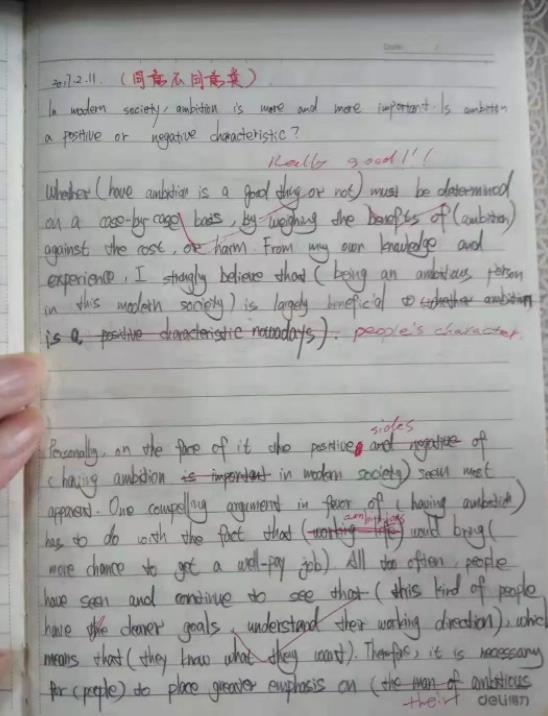 Date: /
2017.2.11. (同意不同意类)
In modern society, ambition is more and more important. Is ambition
a positive or negative characteristic?
Really good!!!
Whether (have ambition is a good thing or not) must be determined
on a case-by-case basis, by weighing the benefits of (ambition)
against the cost, or harm. From my own knowledge and
experience, I strongly believe that (being an ambitious person
in this modern society) is largely beneficial to whether ambition
is a positive characteristic nowadays). people's character.
sides
Personally, on the face of it the positive and negative of
(having ambition is important in modern society) seem most
apparent. One compelling argument in favor of (having ambition)
ambitions
has to do with the fact that (working) would bring (
more chance to get a well-pay job) All too often, people
have seen and continue to see that (this kind of people
have the clearer goals, understand their working direction), which
means that (they know what they want). Therefore, it is necessary
for (people) to place greater emphasis on (the man of ambitious
their
deli